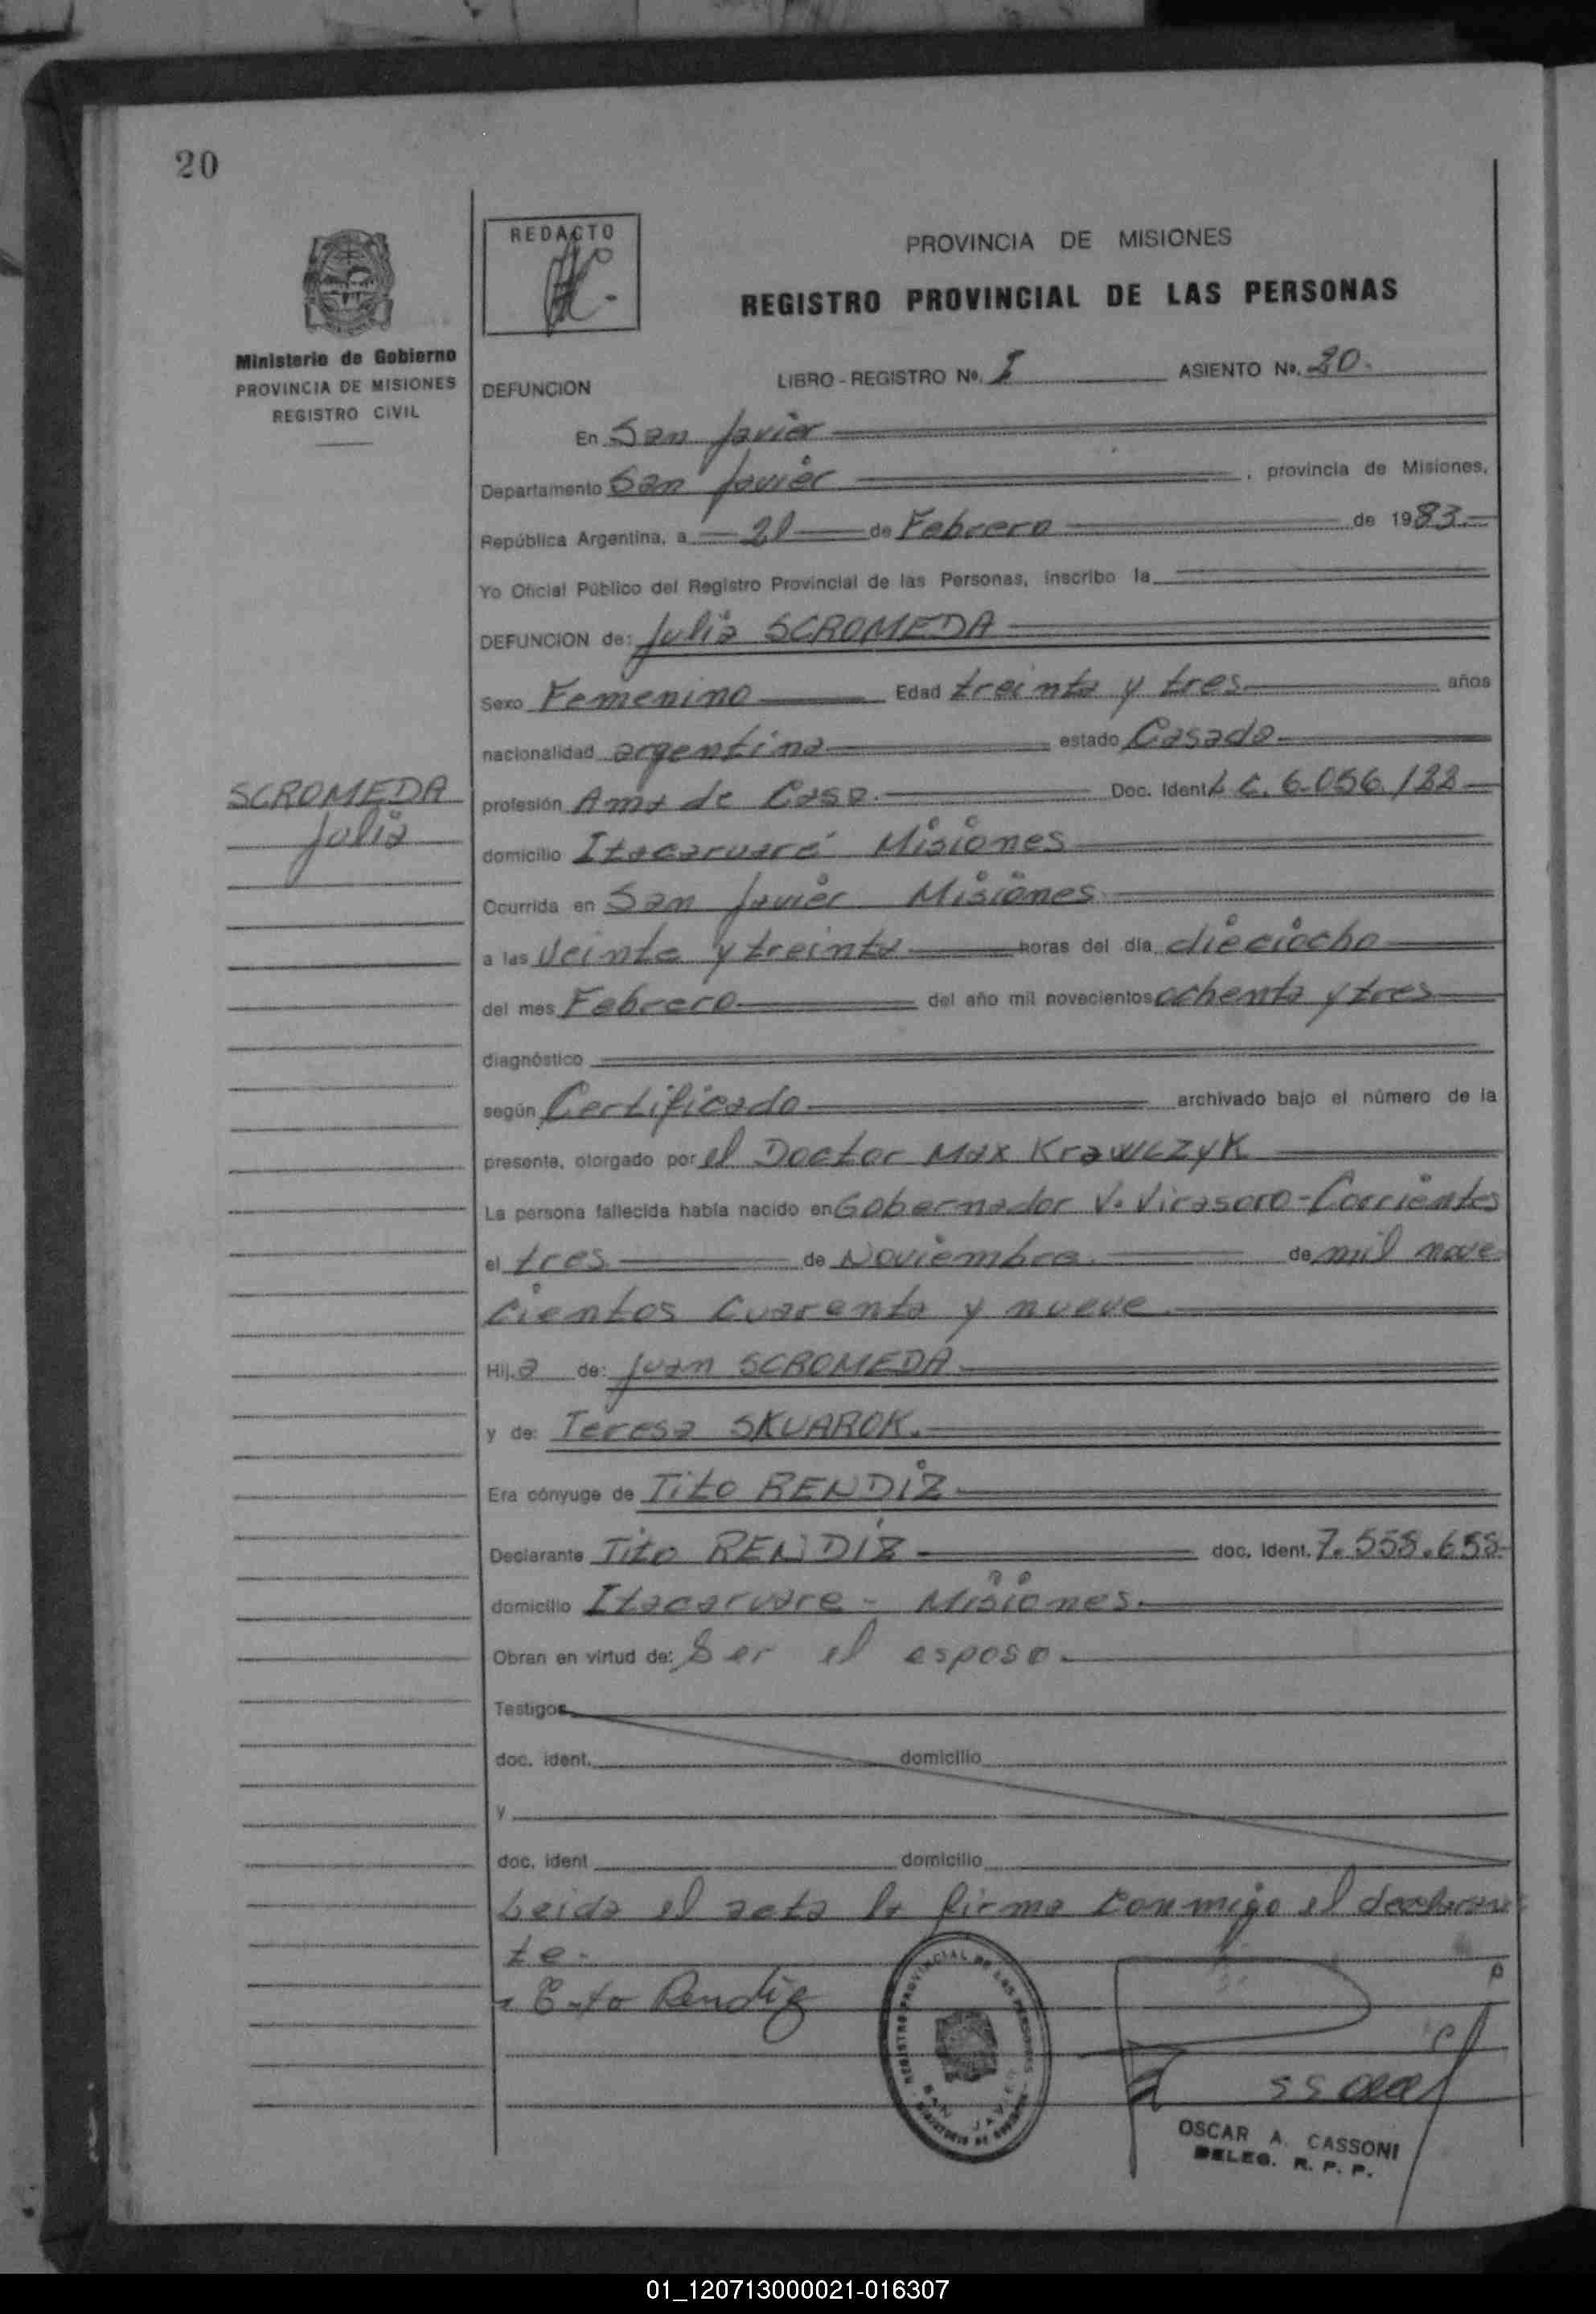 20
REDACTO
PROVINCIA DE MISIONES
REGISTRO PROVINCIAL DE LAS PERSONAS
Ministerio de Gobierno
PROVINCIA DE MISIONES
REGISTRO CIVIL
DEFUNCION LIBRO-REGISTRO Nº. I ASIENTO Nº. 20.
En San Javier
Departamento San Javier , provincia de Misiones,
República Argentina, a 21 de Febrero de 1983.
Yo Oficial Público del Registro Provincial de las Personas, inscribo la
DEFUNCION de: Julia SCROMEDA
Sexo Femenino Edad treinta y tres años
nacionalidad argentina estado Casada
SCROMEDA
Julia
profesión Ama de Casa. Doc. Ident L.C. 6.056.122
domicilio Itacaruaré Misiones
Ocurrida en San Javier Misiones
a las Veinte y treinta horas del día dieciocho
del mes Febrero del año mil novecientos ochenta y tres
diagnóstico
según Certificado archivado bajo el número de la
presente, otorgado por el Doctor Max KrawczyK
La persona fallecida había nacido en Gobernador V. Virasoro-Corrientes
el tres de Noviembre de mil nove
cientos Cuarenta y nueve
Hij.a de: Juan SCROMEDA
y de: Teresa SKUAROK.
Era cónyuge de Tito RENDIZ
Declarante Tito RENDIZ doc. Ident. 7.558.658
domicilio Itacaruare - Misiones.
Obran en virtud de: Ser el esposo.
Testigos
doc. ident. domicilio
y
doc. ident domicilio
Leida el acta la firma conmigo el declaran
te.
Rendiz
REGISTRO PROVINCIAL DE LAS PERSONAS
SAN JAVIER
MINISTERIO DE GOBIERNO
OSCAR A. CASSONI
DELEG. R. P. P.
01_120713000021-016307